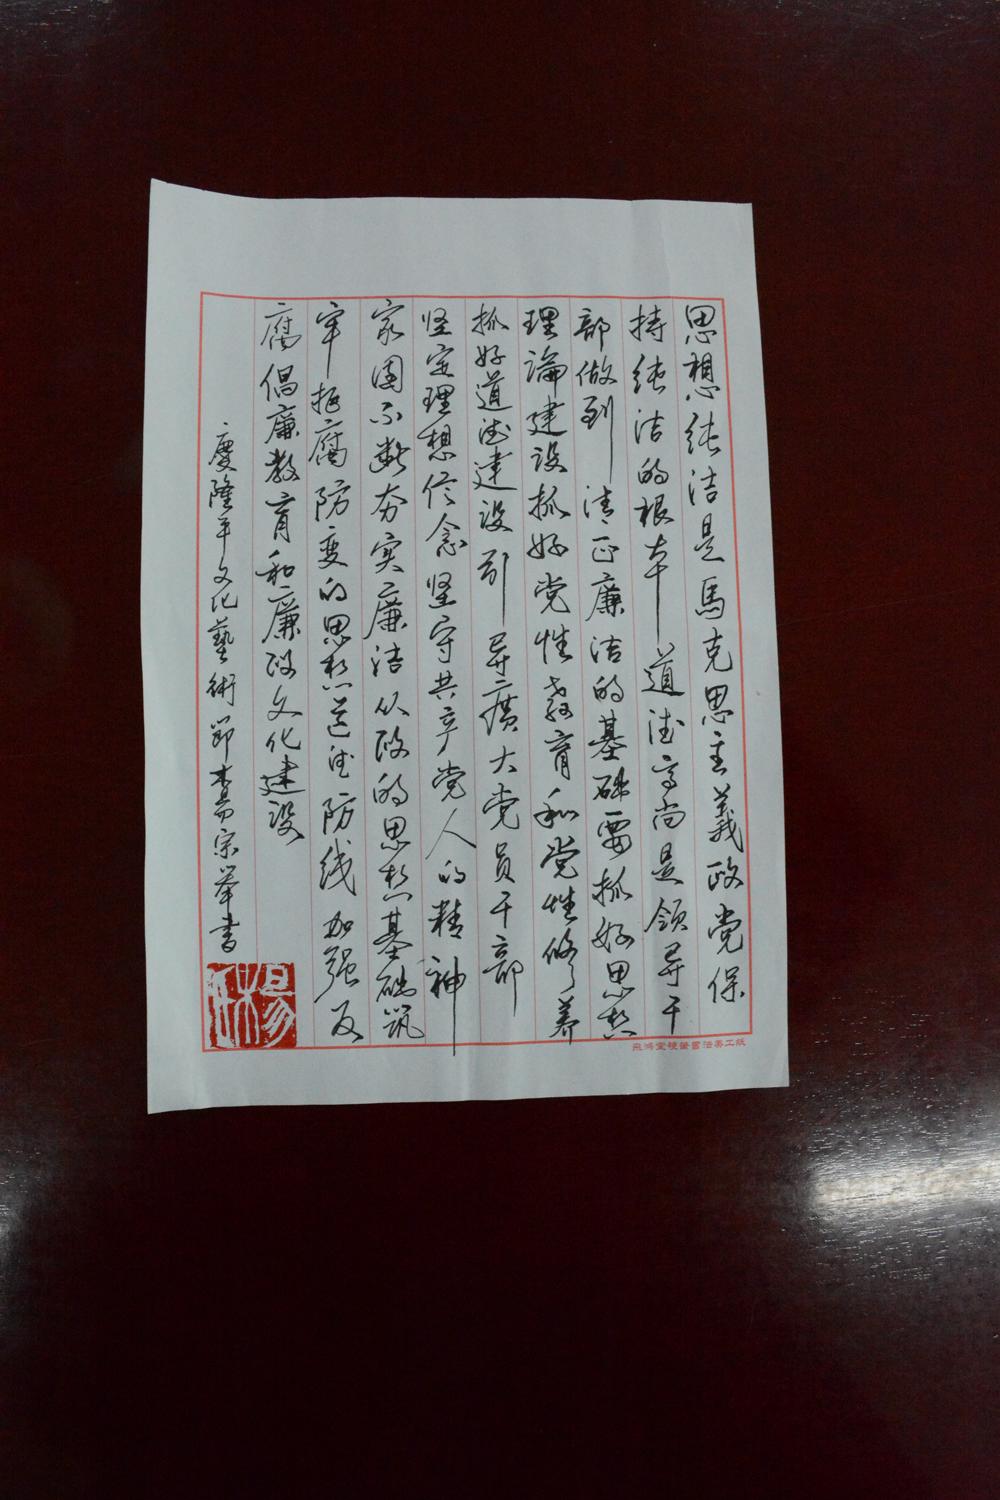 思想纯洁是馬克思主義政党保
持纯洁的根本道德高尚是领导干
部做到清正廉洁的基础要抓好思想
理論建设抓好党性教育和党性修养
抓好道德建设引导廣大党员干部
坚定理想信念坚守共产党人的精神
家园不断夯实廉洁从政的思想基础筑
牢拒腐防变的思想道德防线加强反
腐倡廉教育和廉政文化建设
慶隆平文化藝術節 木易宗举書
楊
飛鴻堂硬筆書法專工紙